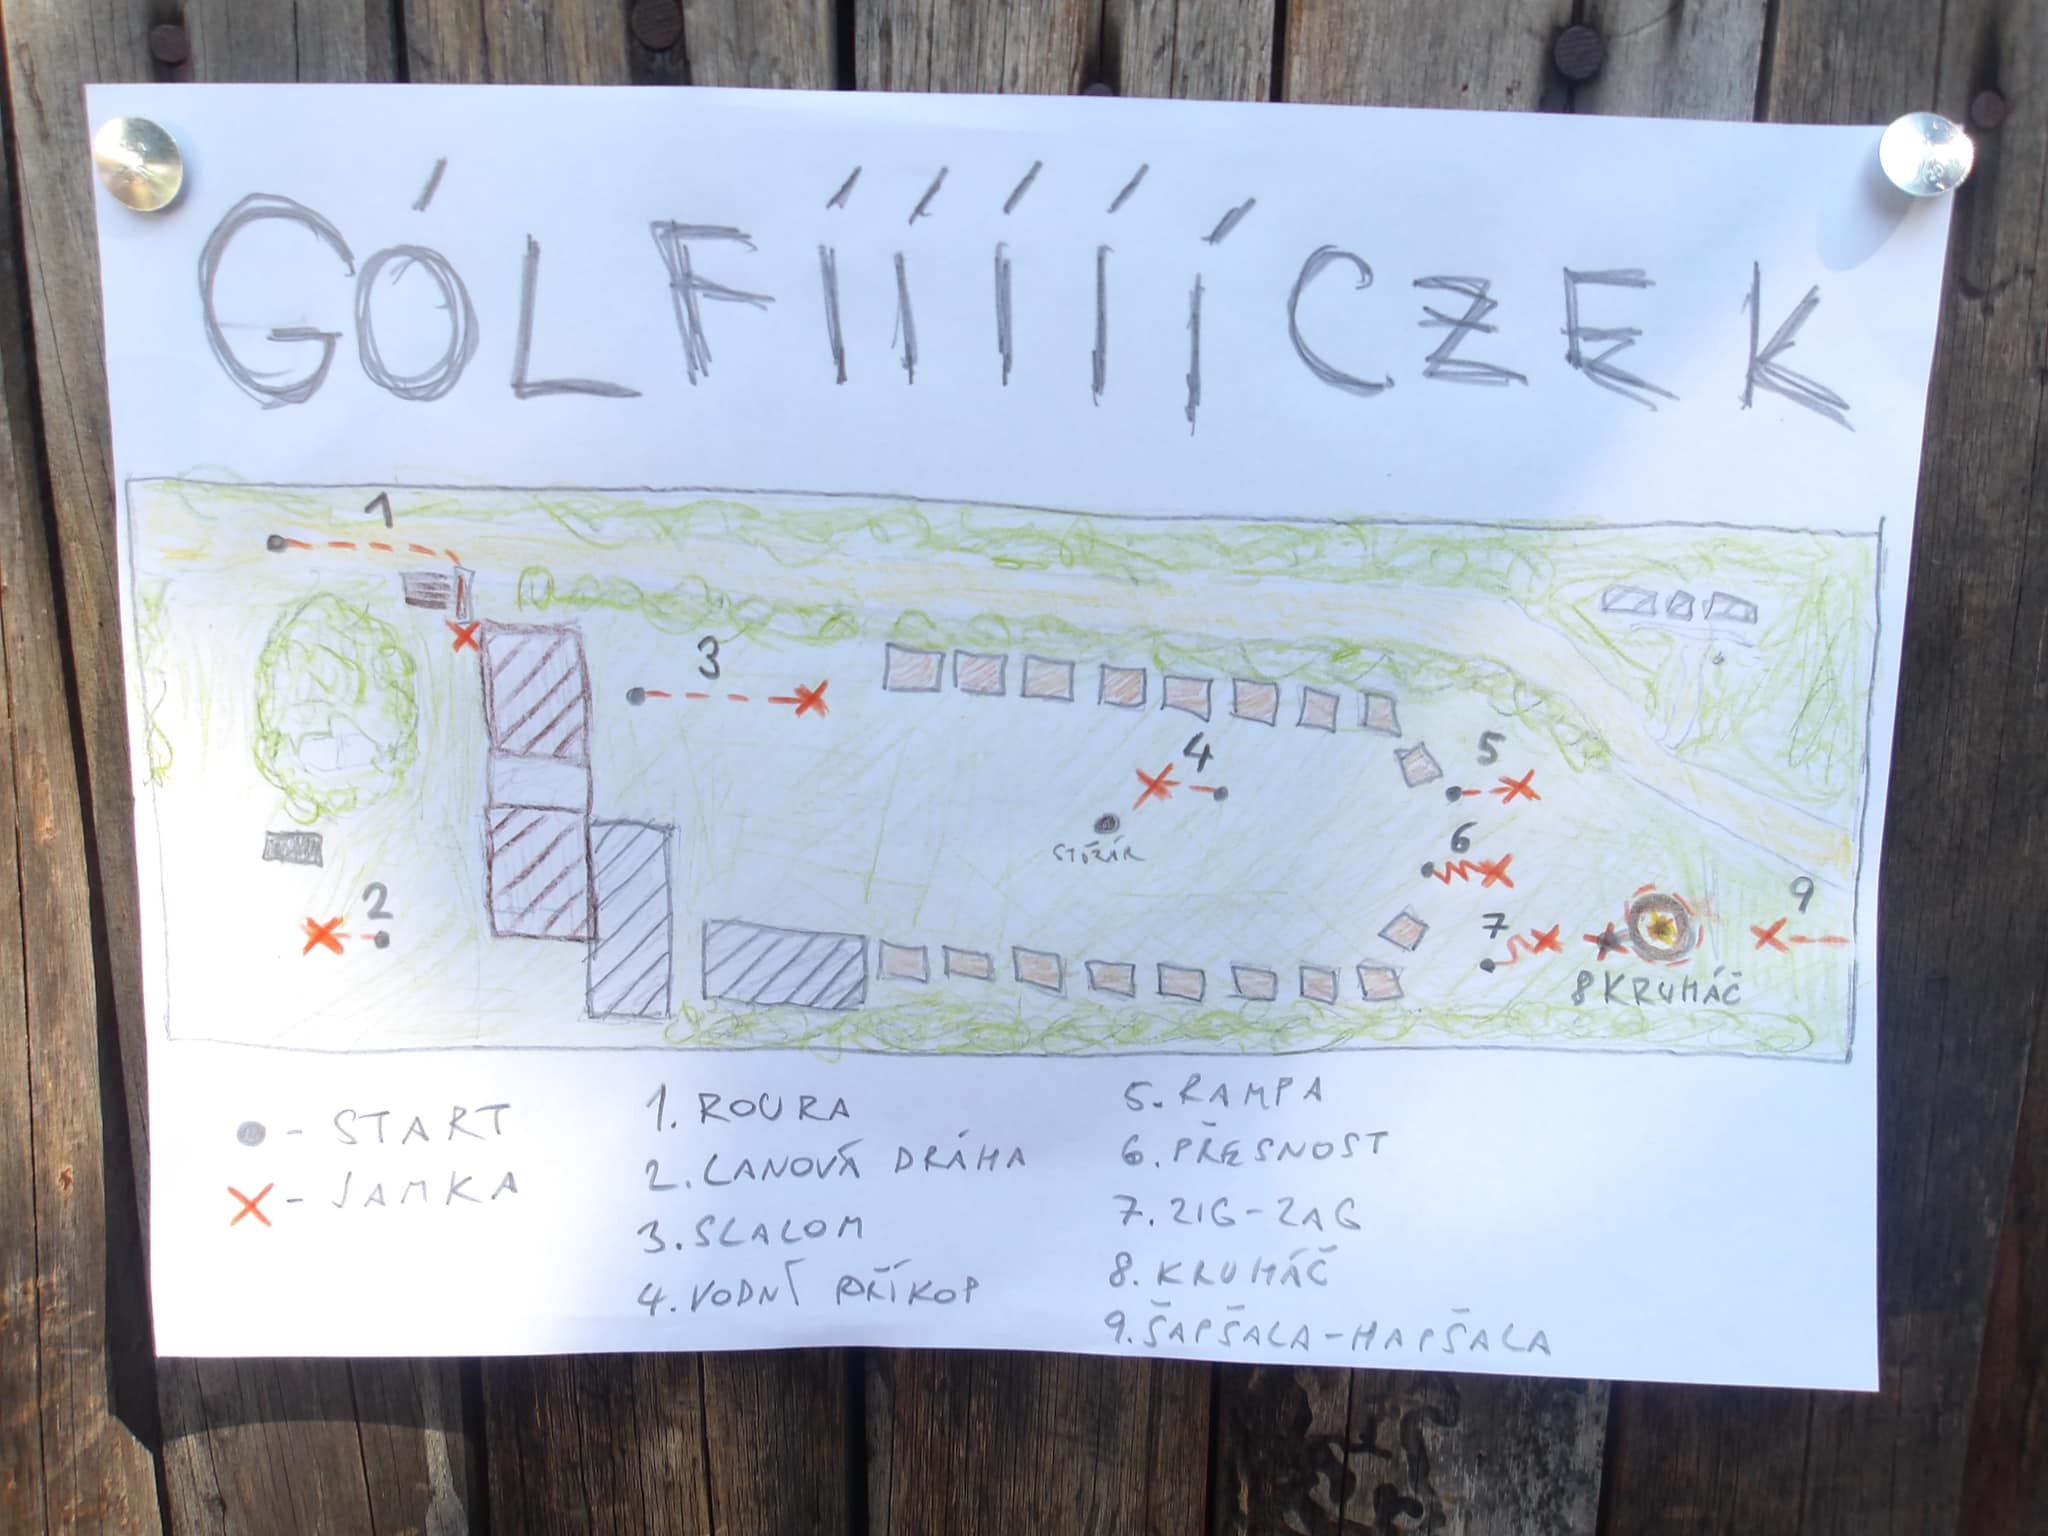 GÓLFÍÍÍÍÍCZEK
1
2
3
4
5
6
7
STOŽÁR
9
8 KRUHÁČ
- START
- JAMKA
1. ROURA
2. LANOVÁ DRÁHA
3. SLALOM
4. VODNÍ PŘÍKOP
5. RAMPA
6. PŘESNOST
7. ZIG-ZAG
8. KRUHÁČ
9. ŠAPŠALA-HAPŠALA